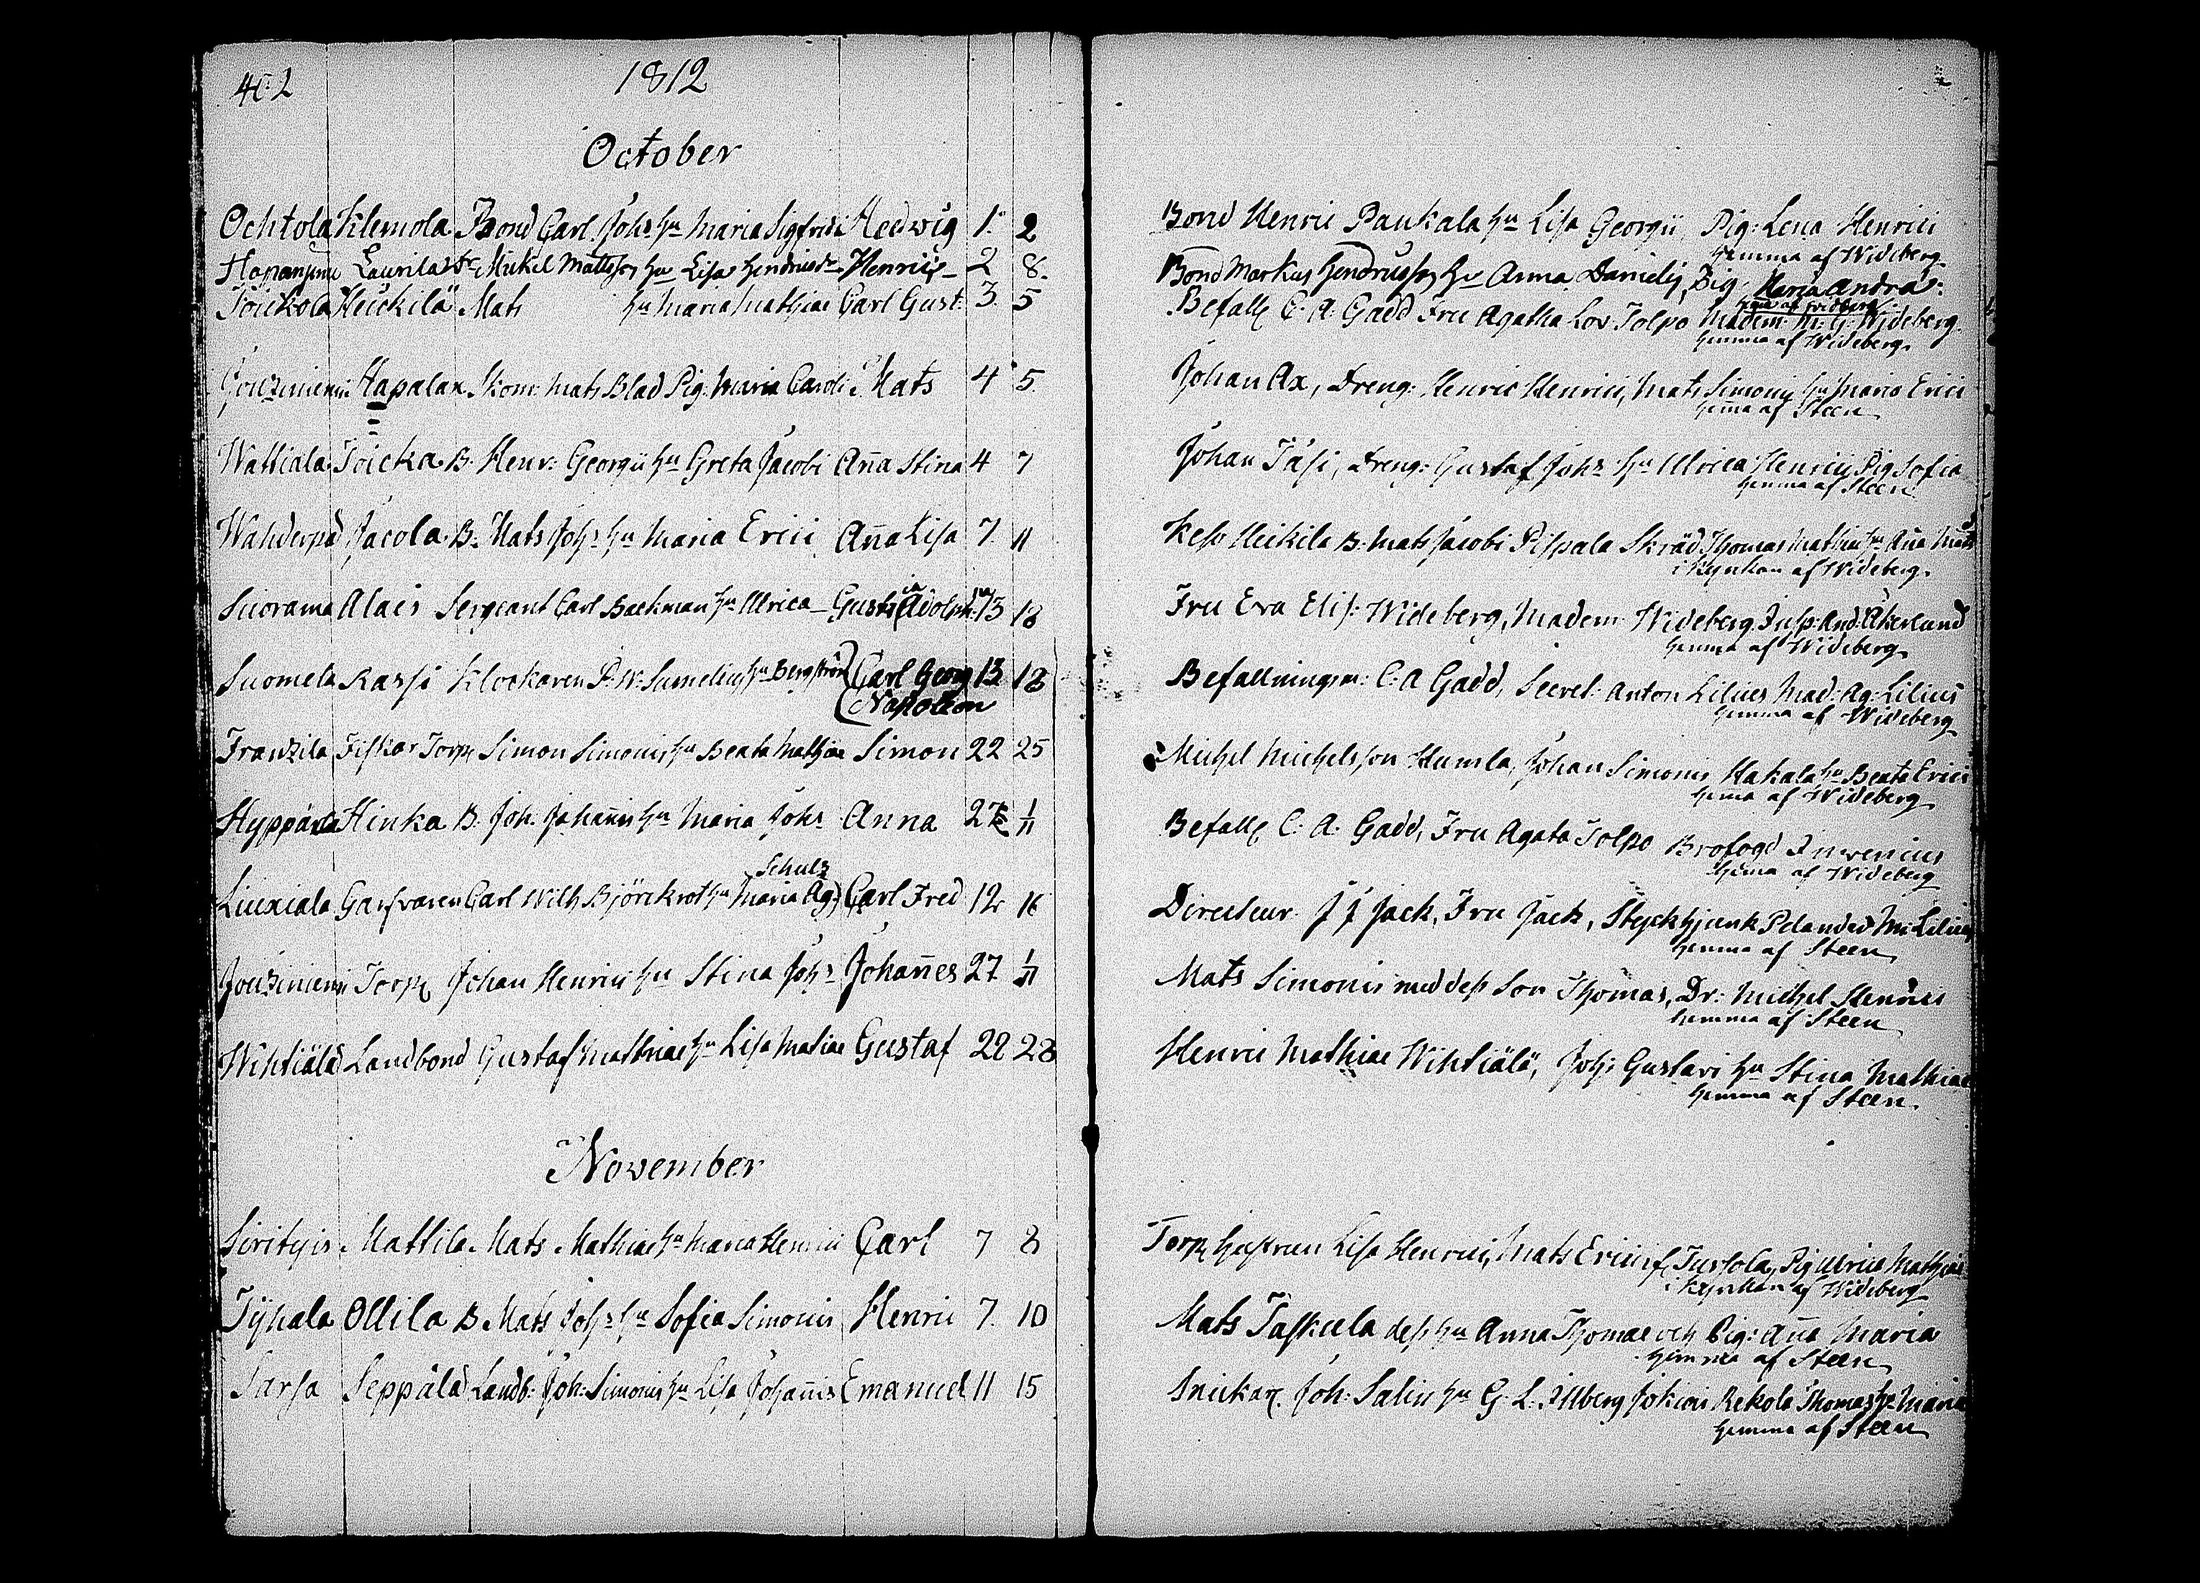 402
1812
October
Ochtola Klemola Bond Carl Johs hu Maria Sigfridi Hedwig 1. 2
Haapaniemi Laurila Mickel Mattsson hu Lisa Hendricsdr Henric 2 8.
Toickola Heickilä Mats hu Maria Mathiae Carl Gust: 3. 5
Jouziniemi Hapala Skom: Mats Blad Pig: Maria Caroli Mats 4 5
Wattiala Toicka B. Henr: Georgii hu Greta Jacobi Aña Stina 4 7
Wahderpä Jacola B. Mats Johs hu Maria Erici Aña Lisa 7 11
Suorama Alais Sergeant Carl Backman hu Ulrica Gusta Adolph: 13 18
Suomela Rassi Klockaren P: W: Sumelius hu Bergström Carl Georg 13 18
Napoleon
Franzila Fiskar Torp Simon Simonis hu Beata Mathiae Simon 22 25
Hyppärä Hinka B. Joh. Johañis hu Maria Johs Anna 27 1/11
Schulz
Liuxiala Garfvaren Carl Wilh Björckrot hu Maria Ag: Carl Fred 12 16
Jouziniemi Torp Johan Henrici hu Stina Johs Johañes 27 1/11
Wihtiälä Landbond Gustaf Mathiae hu Lisa Matiae Gustaf 22 28
November
Mattila Mats Mathiae hu Maria Henrici Carl 7 8
Tyhala Ollila B Mats Johs hu Sofia Simonis Henric 7. 10
Sarsa Seppälä Landb: Joh: Simonis hu Lisa Johañis Emanuel 11 15
Bond Henric Paukala hu Lisa Georgii Pig: Lena Henrici
hemma af Wideberg
Bond Markus Hendrusson hu Anna Danielis, Pig Maria Andra:
hema af Fridberg
Befall C: A: Gadd Fru Agatha Lov Tolpo Madem: M: G: Wideberg
hemma af Wideberg
Johan Ax, Dreng: Henric Henrici, Mats Simonis hu Maria Erici
hema af Steen
Johan Täsi, Dreng: Gustaf Johs hu Ulrica Henrici Pig Sofia
hemma af Steen
Keso Heikila B: Mats Jacobi Pispala Skräd Thomas Mathiae hu Aña Mats
i kyrkan af Wideberg
Fru Eva Elis: Wideberg, Madem Wideberg Insp: And: Åkerlund
hemma af Wideberg
Befallningsm: C: A Gadd, Secret: Anton Lilius Mad: Ag: Lilius
hemma af Wideberg
Michel Michelsson Humla, Johan Simonis Hakala hu Beata Erici
hema af Wideberg
Befall C: A: Gadd, Fru Agata Tolpo Brofogd Invenius
hema af Wideberg
Directeur J J Jack, Fru Jack, Styckhjunk Pelander M: Lilius
hemma af Steen
Mats Simonis med dess Son Thomas, Dr: Michel Henrici
hemma af Steen
Henric Mathiae Wihtiälä, Johs Gustavi hu Stina Mathiae
hemma af Steen
Torp hustrun Lisa Henrici, Mats Erici Tursola, Pig Ulrica Mathiae
i kyrkan af Wideberg
Mats Taskula dess hu Anna Thomae och Pig: Aña Maria
hemma af Steen
Snickar Joh: Salin hu G: L: Illberg Jokioi Rekola Thomas hu Maria
hemma af Steen